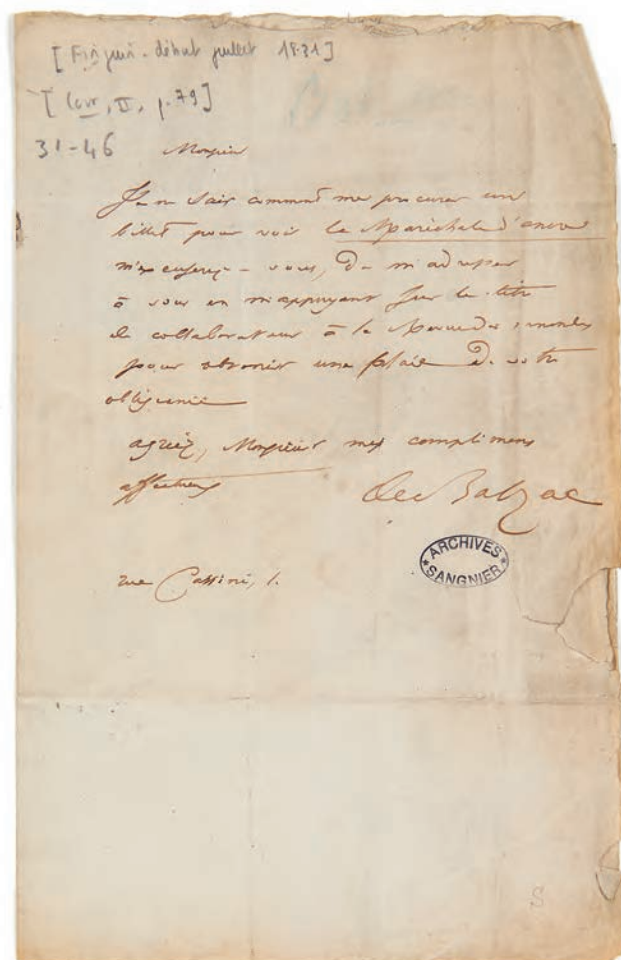 [Fin juin - début juillet 1831]
[Cor, II, p. 79]
31-46
Monsieur
Je ne sais comment me procurer un
billet pour voir la Maréchale d'ancre
m'excuserez-vous, de m'adresser
à vous en m'appuyant sur le titre
de collaborateur à la Revue des 2 mondes
pour obtenir une place de votre
obligeance
agréez, Monsieur mes complimens
affectueux
de Balzac
ARCHIVES
SANGNIER
rue Cassini, 1.
S